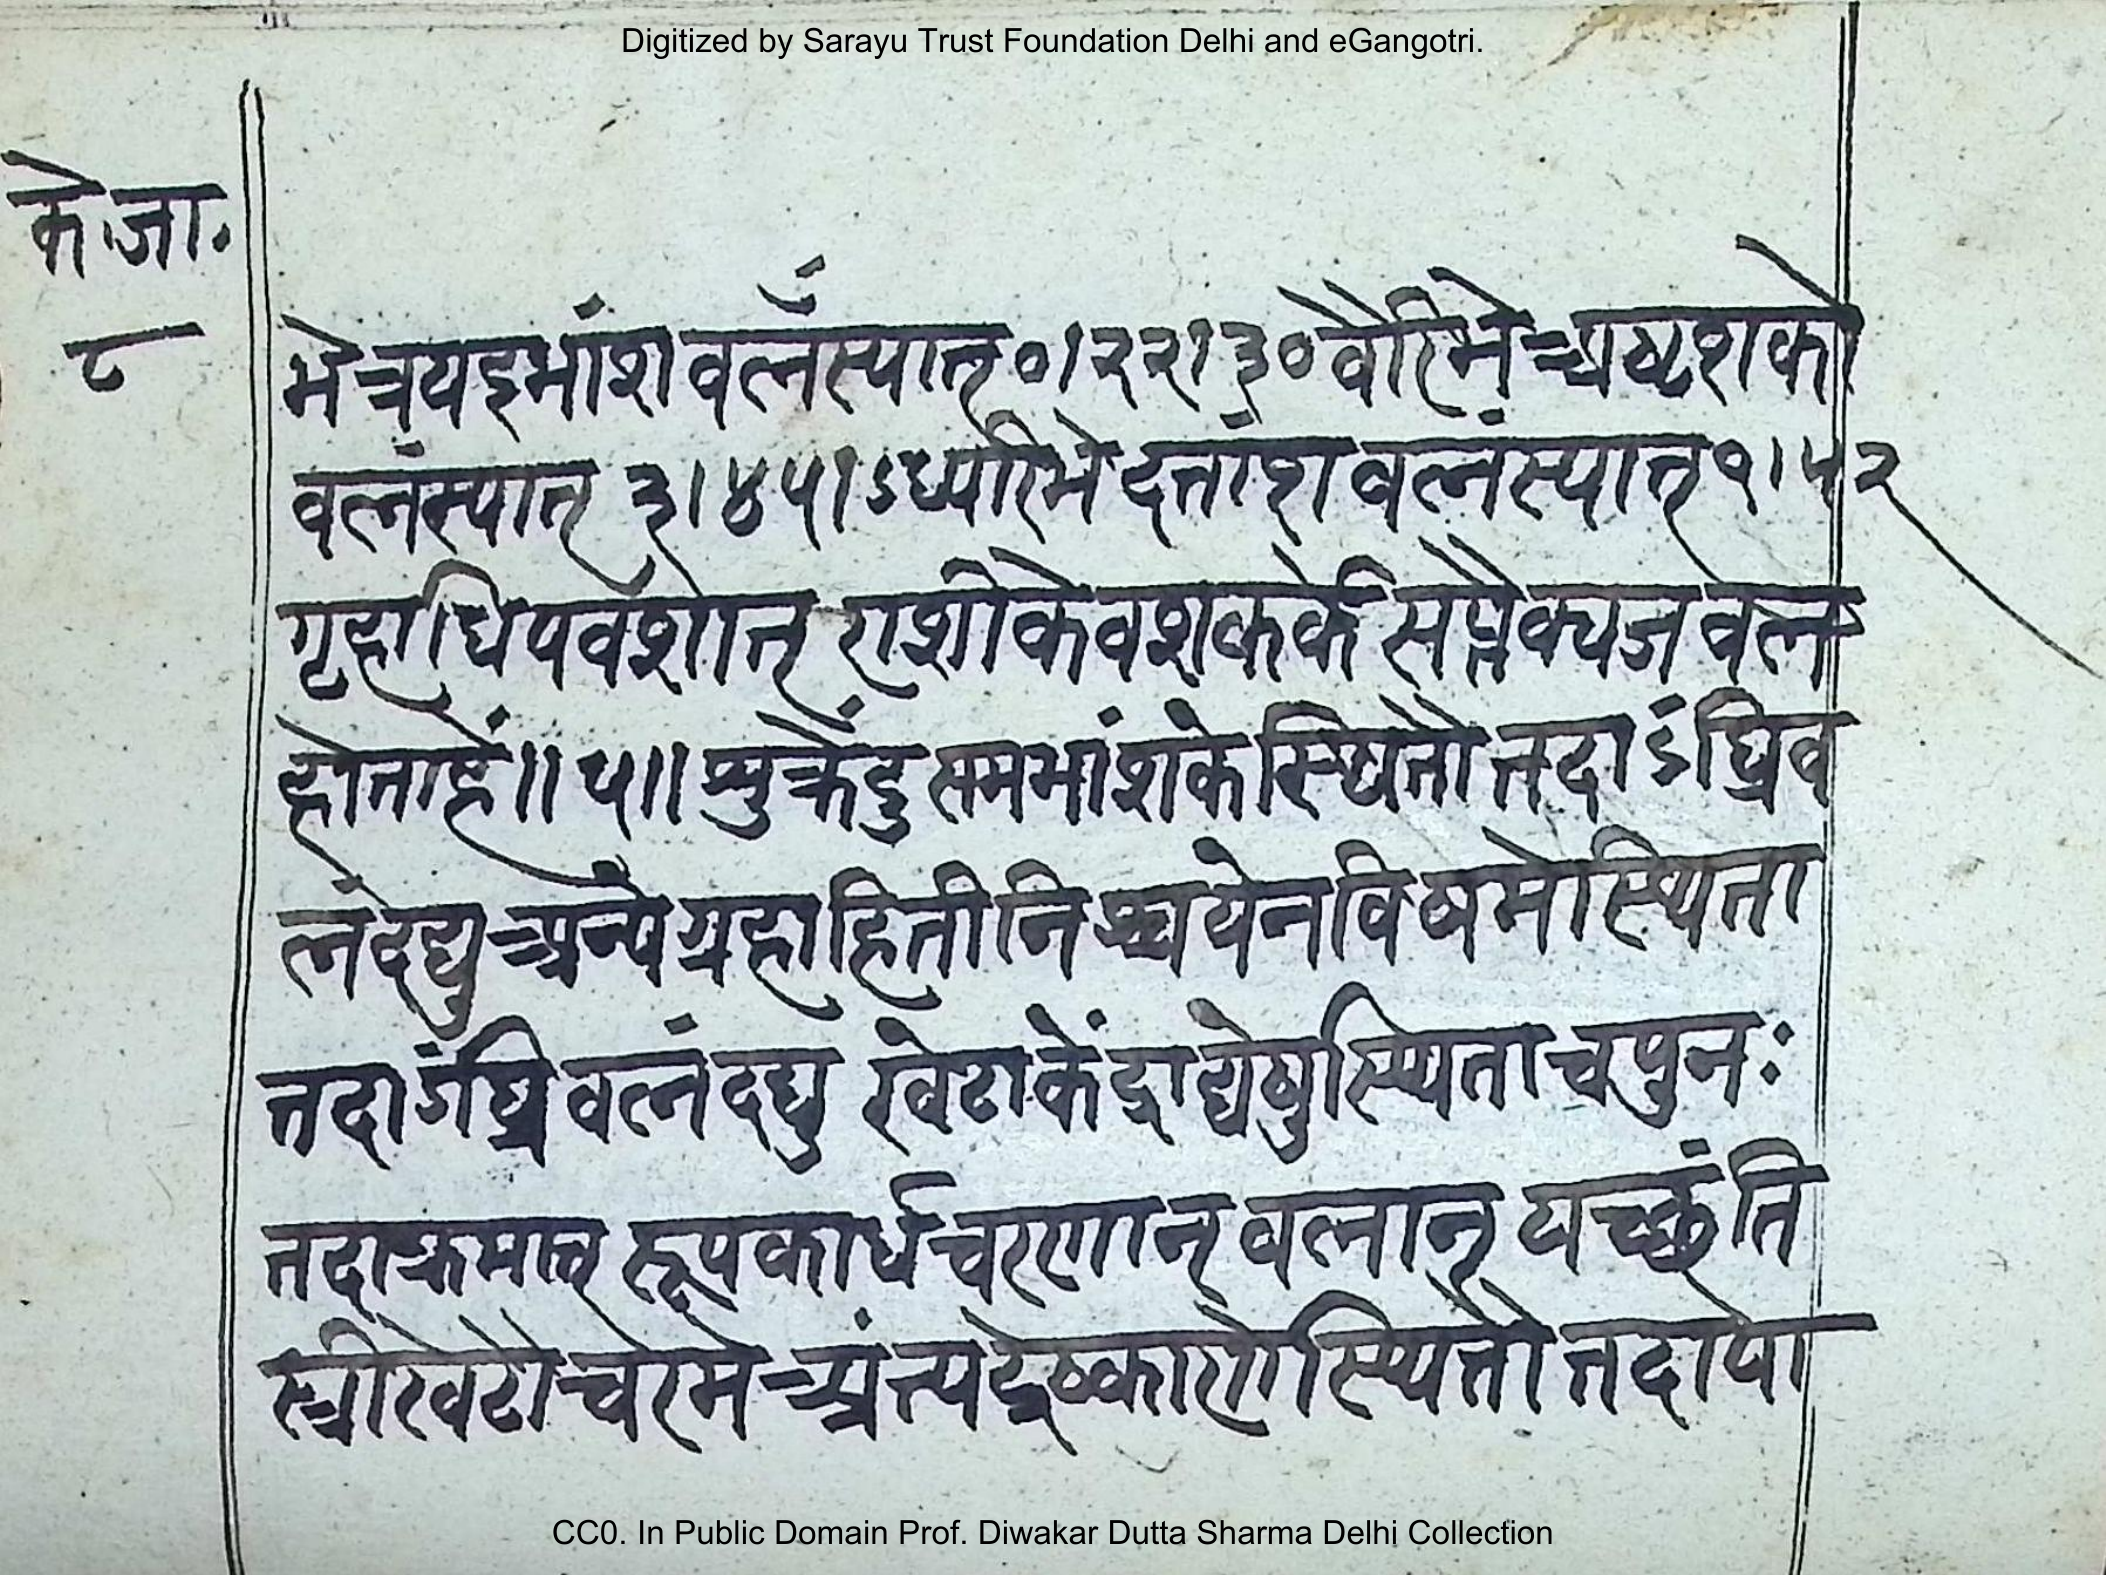 Digitized by Sarayu Trust Foundation Delhi and eGangotri.
के.जा.
८
भे त्रयइभांश वलँस्यात् ०।२२।३० वैरिभे अष्टांशको
वलंस्यात् ३।४५।ऽध्यरिभे दन्तांश वलंस्यात् १।५२
गृहाधिपवशात् राशीकेवशकर्के सप्तैक्यज वल
होताहै॥५॥ शुक्रेंदु समभांशके स्थितौ तदाऽंघ्रिव
लं दद्यु अन्ये ग्रहा हिती निश्चयेन विषमे स्थिता
तदाऽंघ्रि वलं दद्यु खेटा केंद्राद्येषु स्थिता च पुनः
तदा क्रमात् रूपकार्धचरणान् वलान् यच्छंति
स्त्रीखेटौ चरमे अंत्यद्रेष्काणे स्थितौ तदा पा
CC0. In Public Domain Prof. Diwakar Dutta Sharma Delhi Collection